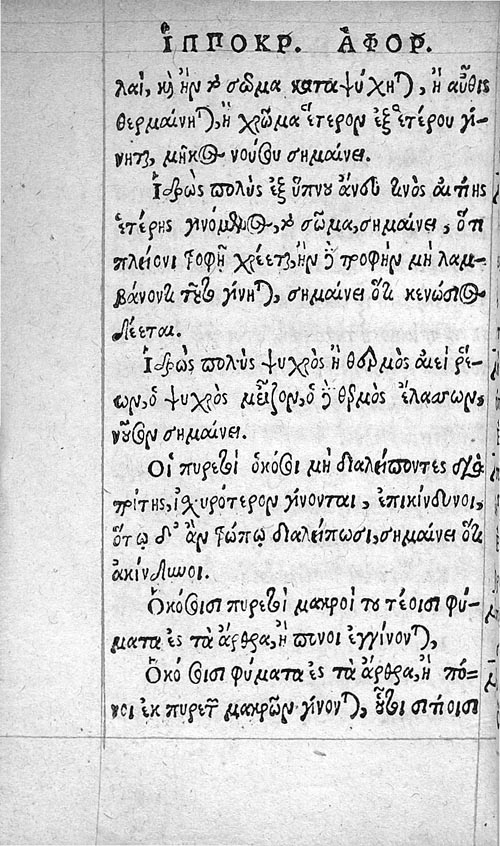 ἹΠΠΟΚΡ. ἈΦΟΡ.
λαὶ, καὶ ἢν τὸ σῶμα καταψύχηται, ἢ αὖθις
θερμαίνηται, ἢ χρῶμα ἕτερον ἐξ ἑτέρου γί-
νηται, μῆκος νούσου σημαίνει.
Ἱδρὼς πολὺς ἐξ ὕπνου ἄνευ τινὸς αἰτίης
ἑτέρης γινόμενος, τὸ σῶμα, σημαίνει, ὅτι
πλείονι τροφῇ χρέεται, ἢν δὲ τροφὴν μὴ λαμ-
βάνοντι τοῦτο γίνηται, σημαίνει ὅτι κενώσιος
δέεται.
Ἱδρὼς πολὺς ψυχρὸς ἢ θερμὸς αἰεὶ ῥέ-
ων, ὁ ψυχρὸς μείζον, ὁ δὲ θερμὸς ἐλάττων,
νοῦσον σημαίνει.
Οἱ πυρετοὶ ὁκόσοι μὴ διαλείποντες διὰ
τρίτης, ἰσχυρότερον γίνονται, ἐπικίνδυνοι,
ὅτῳ δ' ἂν τρόπῳ διαλείπωσι, σημαίνει ὅτι
ἀκίνδυνοι.
Ὁκόσισι πυρετοὶ μακροὶ τουτέοισι φύ-
ματα ἐς τὰ ἄρθρα, ἢ πόνοι ἐγγίνονται,
Ὁκόσισι φύματα ἐς τὰ ἄρθρα, ἢ πό-
νοι ἐκ πυρετῶν μακρῶν γίνονται, οὗτοι σιτίοισι